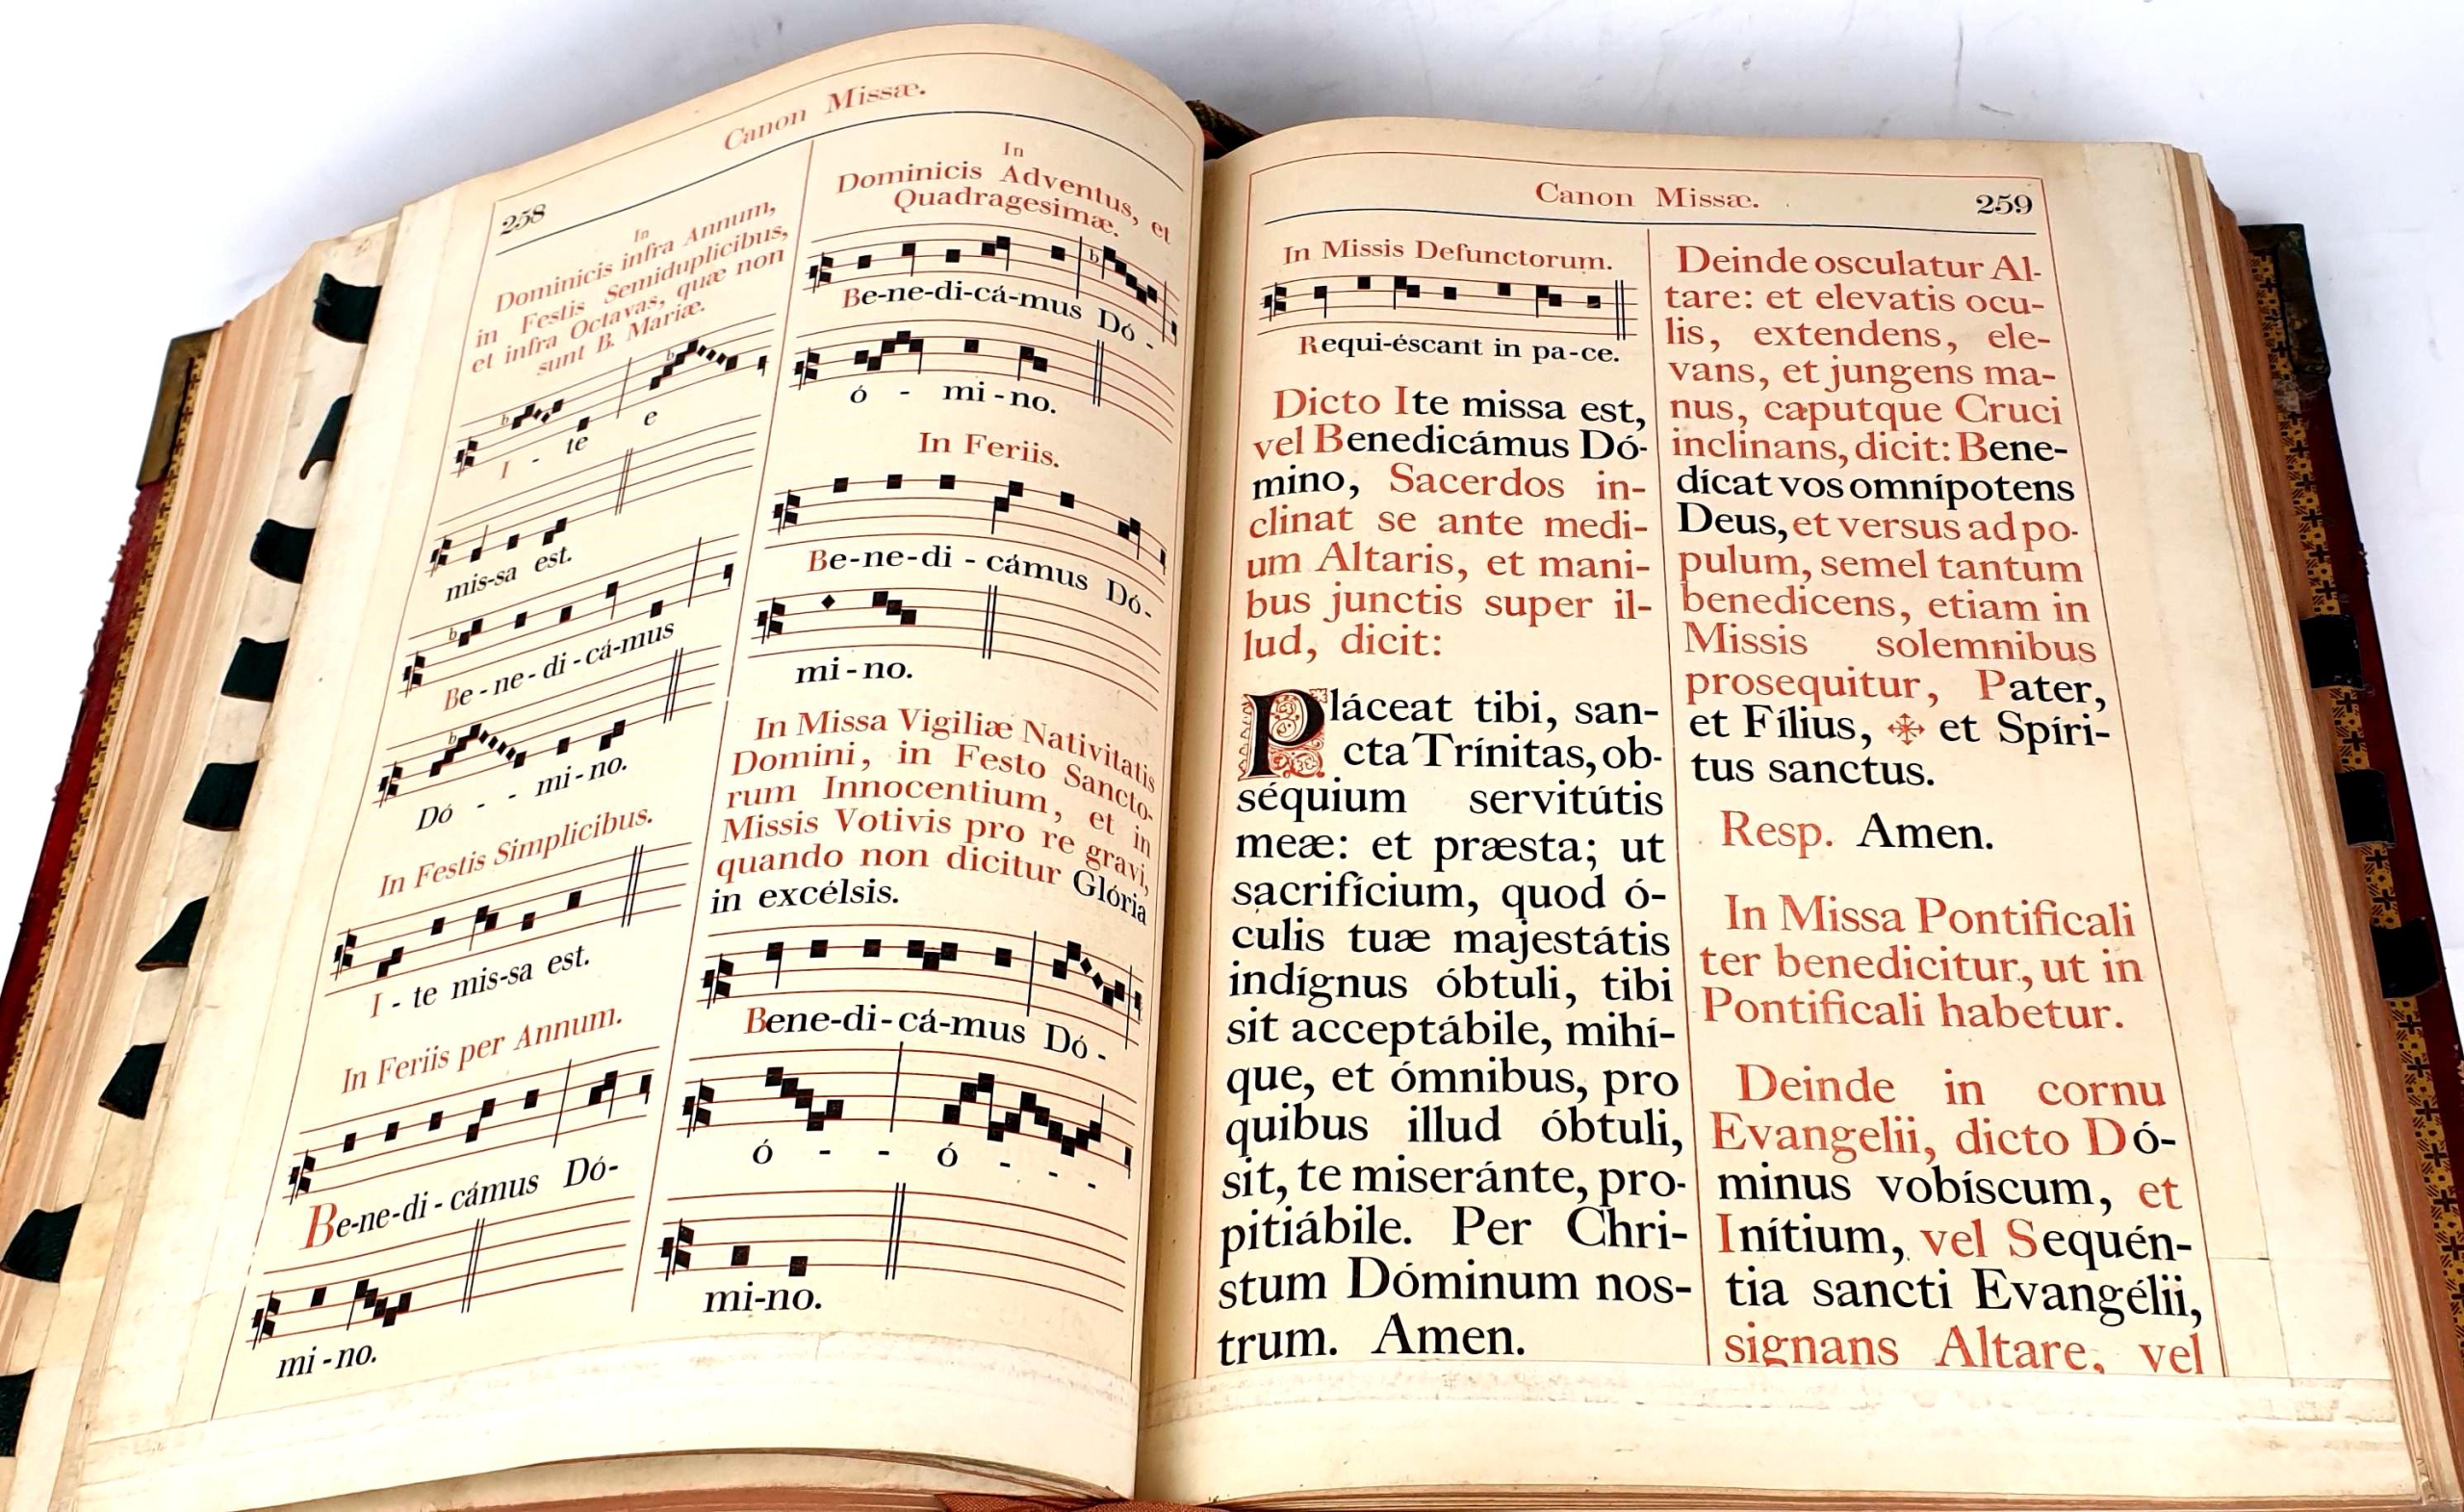 Canon Missæ.
258
In
Dominicis infra Annum,
in Festis Semiduplicibus,
et infra Octavas, quæ non
sunt B. Mariæ.
I - te e
mis-sa est.
Be-ne-di-cá-mus
Dó - - mi-no.
In Festis Simplicibus.
I - te mis-sa est.
In Feriis per Annum.
Be-ne-di-cámus Dó-
mi-no.
In
Dominicis Adventus, et
Quadragesimæ.
Be-ne-di-cá-mus Dó -
ó - mi-no.
In Feriis.
Be-ne-di-cámus Dó-
mi-no.
In Missa Vigiliæ Nativitatis
Domini, in Festo Sancto-
rum Innocentium, et in
Missis Votivis pro re gravi,
quando non dicitur Glória
in excélsis.
Bene-di-cá-mus Dó -
ó - - ó - - -
mi-no.
Canon Missæ.
259
In Missis Defunctorum.
Requi-éscant in pa-ce.
Dicto Ite missa est,
vel Benedicámus Dó-
mino, Sacerdos in-
clinat se ante medi-
um Altaris, et mani-
bus junctis super il-
lud, dicit:
Pláceat tibi, san-
cta Trínitas, ob-
séquium servitútis
meæ: et præsta; ut
sacrifícium, quod ó-
culis tuæ majestátis
indígnus óbtuli, tibi
sit acceptábile, mihí-
que, et ómnibus, pro
quibus illud óbtuli,
sit, te miseránte, pro-
pitiábile. Per Chri-
stum Dóminum nos-
trum. Amen.
Deinde osculatur Al-
tare: et elevatis ocu-
lis, extendens, ele-
vans, et jungens ma-
nus, caputque Cruci
inclinans, dicit: Bene-
dícat vos omnípotens
Deus, et versus ad po-
pulum, semel tantum
benedicens, etiam in
Missis solemnibus
prosequitur, Pater,
et Fílius, ✠ et Spíri-
tus sanctus.
Resp. Amen.
In Missa Pontificali
ter benedicitur, ut in
Pontificali habetur.
Deinde in cornu
Evangelii, dicto Dó-
minus vobíscum, et
Inítium, vel Sequén-
tia sancti Evangélii,
signans Altare, vel